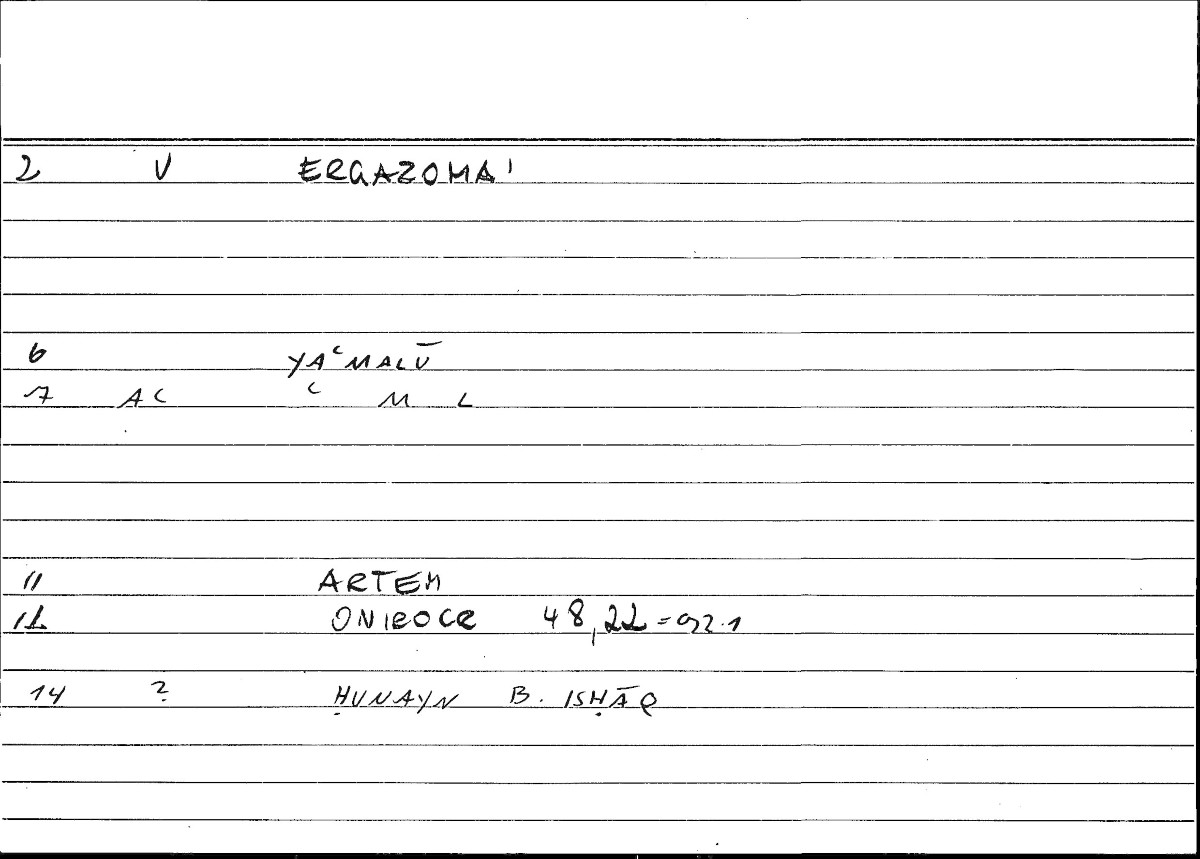 2 V ERGAZOMAI
6 YAʿMALŪ
7 AC ʿ M L
11 ARTEM
12 ONIROCR 48,22 = 92.1
14 ? ḤUNAYN B. ISḤĀQ